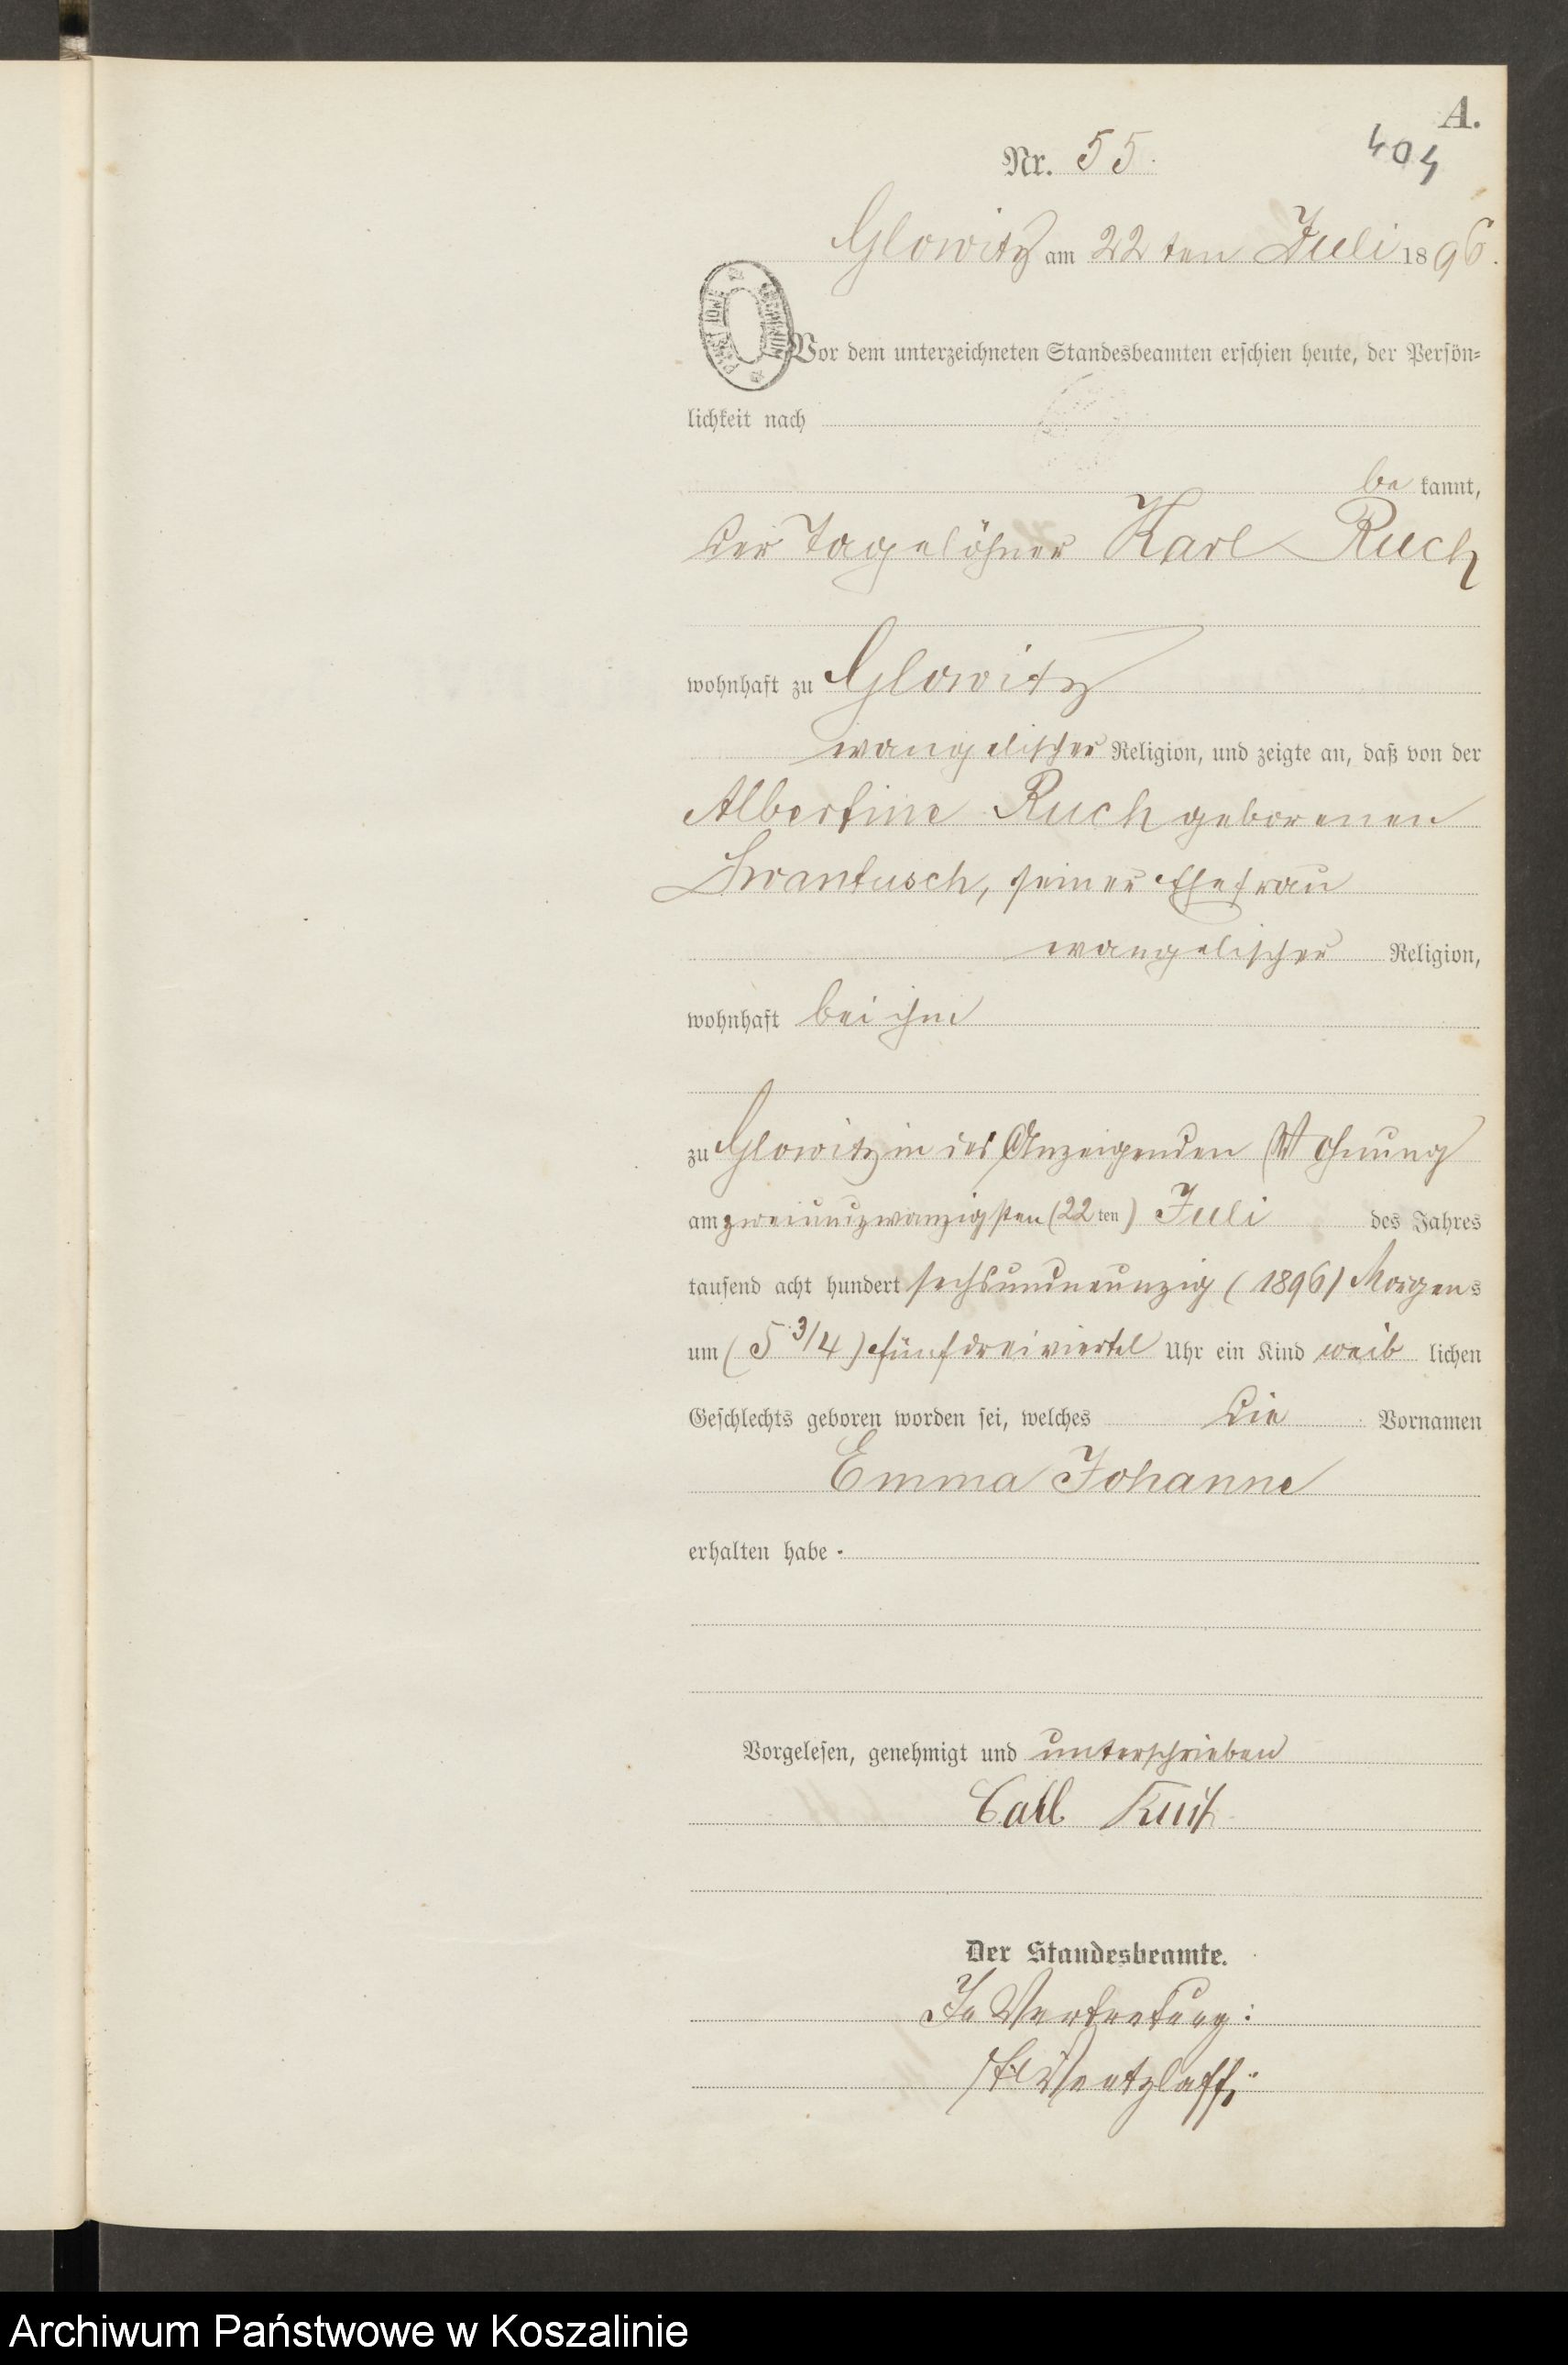 A.
404
Nr. 55.
Glowitz am 22 ten Juli 1896.
Vor dem unterzeichneten Standesbeamten erschien heute, der Persön-
lichkeit nach
be kannt,
der Tagelöhner Karl Ruch
wohnhaft zu Glowitz
evangelischer Religion, und zeigte an, daß von der
Albertine Ruch geborenen
Swantusch, seiner Ehefrau
evangelischer Religion,
wohnhaft bei ihm
zu Glowitz in des Anzeigenden Wohnung
am zweiundzwanzigsten (22 ten) Juli des Jahres
tausend acht hundert sechsundneunzig (1896) Morgens
um (5 3/4) fünf dreiviertel Uhr ein Kind weib lichen
Geschlechts geboren worden sei, welches die Vornamen
Emma Johanne
erhalten habe.
Vorgelesen, genehmigt und unterschrieben
Carl Ruch
Der Standesbeamte.
In Vertretung:
Wentzlaff.
Archiwum Państwowe w Koszalinie